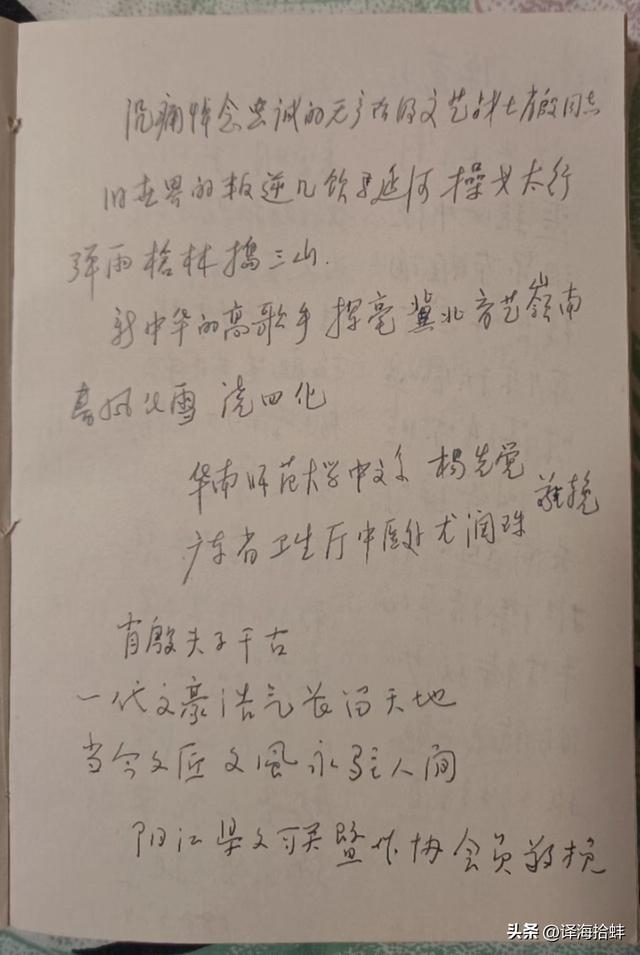 沉痛悼念忠诚的无产阶级文艺战士有殷同志
旧世界的叛逆儿饮马延河操戈太行
弹雨枪林捣三山.
新中华的高歌手挥毫冀北育艺岭南
春风化雪浇四化
华南师范大学中文系 杨先党
敬挽
广东省卫生厅中医处尤润珠
有殷夫子千古
一代文豪浩气长留天地
当今文匠文風永驻人间
阳江县文联暨作协会员敬挽
头条 @译海拾蚌